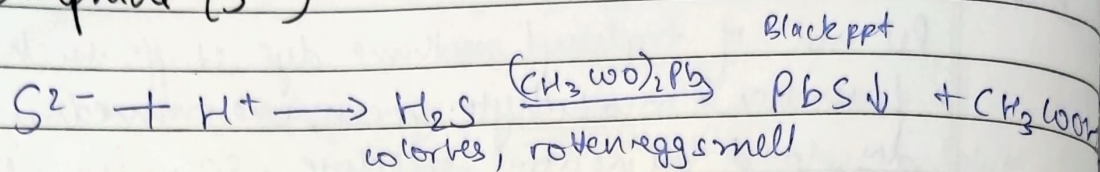 Black ppt
S²⁻ + H⁺ ⟶ H₂S (CH₃COO)₂Pb⟶ PbS↓ + CH₃COOH
colorles, rotten egg smell